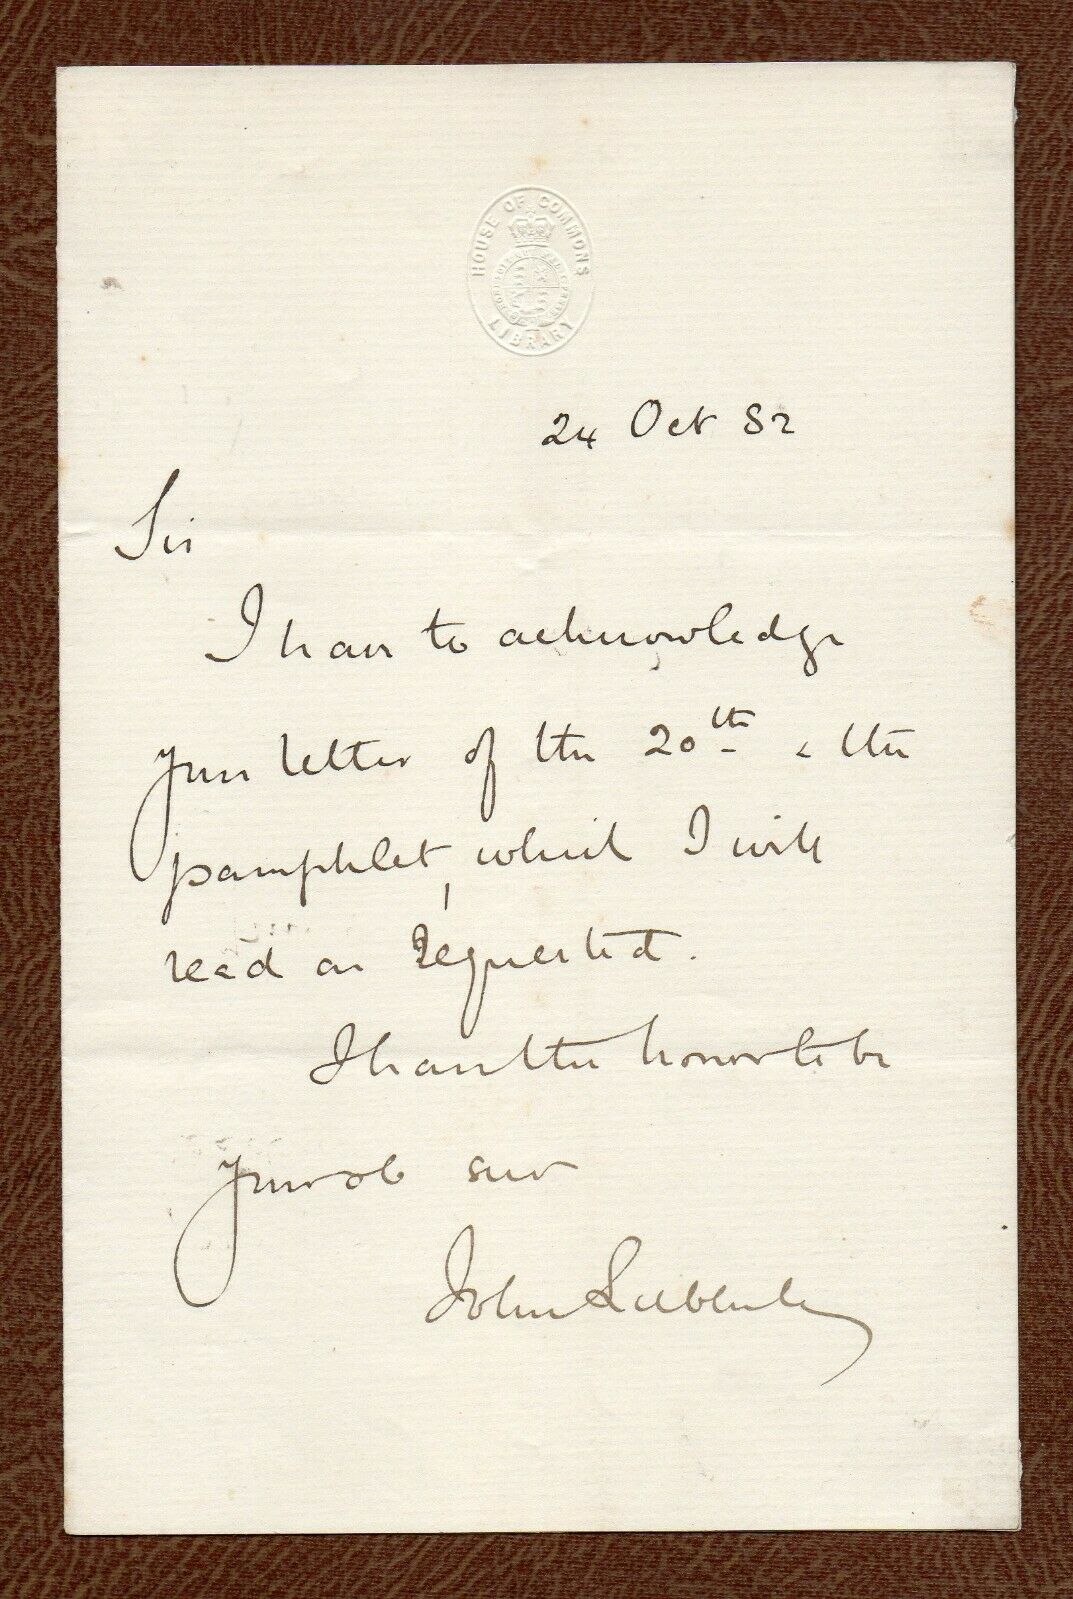 HOUSE OF COMMONS
LIBRARY
24 Oct 82
Sir
I have to acknowledge
your letter of the 20th & the
pamphlet, which I will
read as requested.
I have the honor to be
your ob serv
John Lubbock